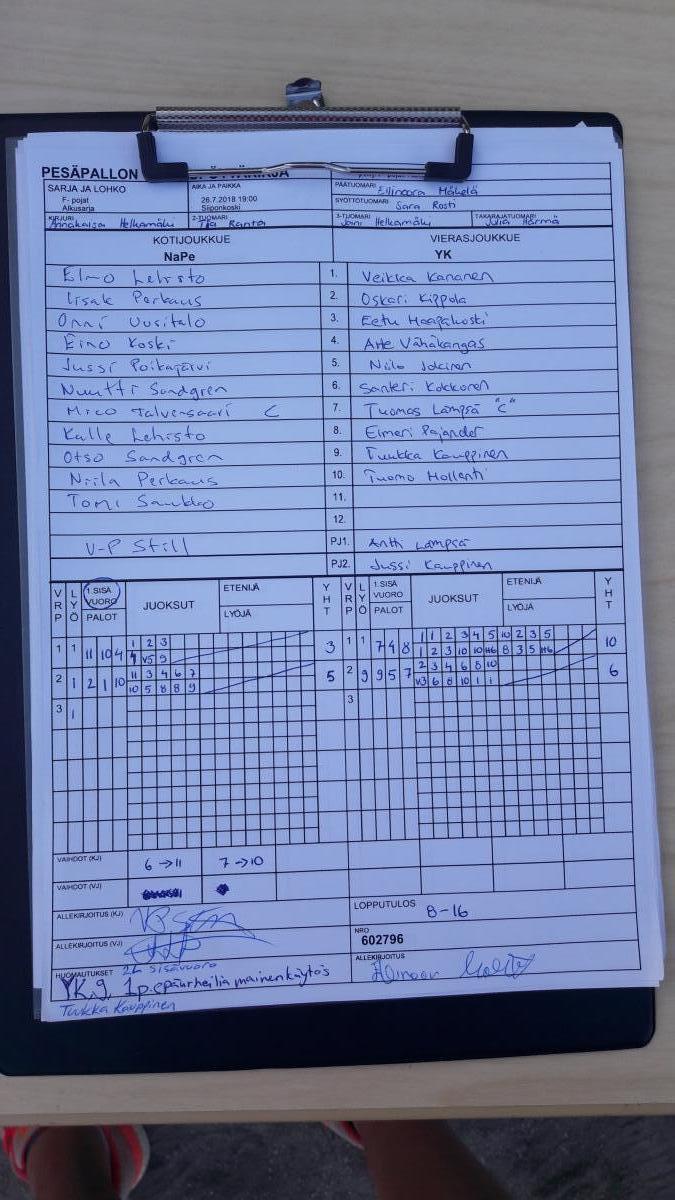 PESÄPALLON
SARJA JA LOHKO
F- pojat
Alkusarja
AIKA JA PAIKKA
26.7.2018 19:00
Siiponkoski
PÄÄTUOMARI Ellinoora Mäkelä
SYÖTTÖTUOMARI Sara Rosti
KIRJURI Annakaisa Helkamäki
2-TUOMARI Tiia Ranta
3-TUOMARI Jani Helkamäki
TAKARAJATUOMARI Julia Härmä
KOTIJOUKKUE VIERASJOUKKUE
NaPe YK
Elmo Lehisto 1. Veikka Kananen
Iisak Perkaus 2. Oskari Kippola
Onni Uusitalo 3. Eetu Haapakoski
Eino Koski 4. Atte Vähäkangas
Jussi Poikajärvi 5. Niilo Jokinen
Nuutti Sandgren 6. Santeri Kokkonen
Mico Talvensaari C 7. Tuomas Lämpsä "C"
Kalle Lehisto 8. Elmeri Pajander
Otso Sandgren 9. Tuukka Kauppinen
Niila Perkaus 10. Tuomo Hollanti
Tomi Saukko 11.
12.
V-P Still PJ1. Antti Lämpsä
PJ2. Jussi Kauppinen
VRP LYÖ 1.SISÄ VUORO PALOT JUOKSUT ETENIJÄ LYÖJÄ YHT VRP LYÖ 1.SISÄ VUORO PALOT JUOKSUT ETENIJÄ LYÖJÄ YHT
1 2 3 1 1 2 3 4 5 10 2 3 5
1 1 11 10 4 4 V5 9 3 1 1 7 4 8 1 2 3 10 10 H6 8 3 5 H6 10
11 3 4 6 7 2 3 4 6 8 10
2 1 2 1 10 10 5 8 8 9 5 2 9 9 5 7 V3 6 8 10 1 1 6
3 1 3
VAIHDOT (KJ) 6→11 7→10
VAIHDOT (VJ)
ALLEKIRJOITUS (KJ)
LOPPUTULOS 8-16
ALLEKIRJOITUS (VJ)
NRO
602796
HUOMAUTUKSET 2s sisävuoro
ALLEKIRJOITUS
YK.9. 1p. epäurheilia mainenkäytös
Tuukka Kauppinen